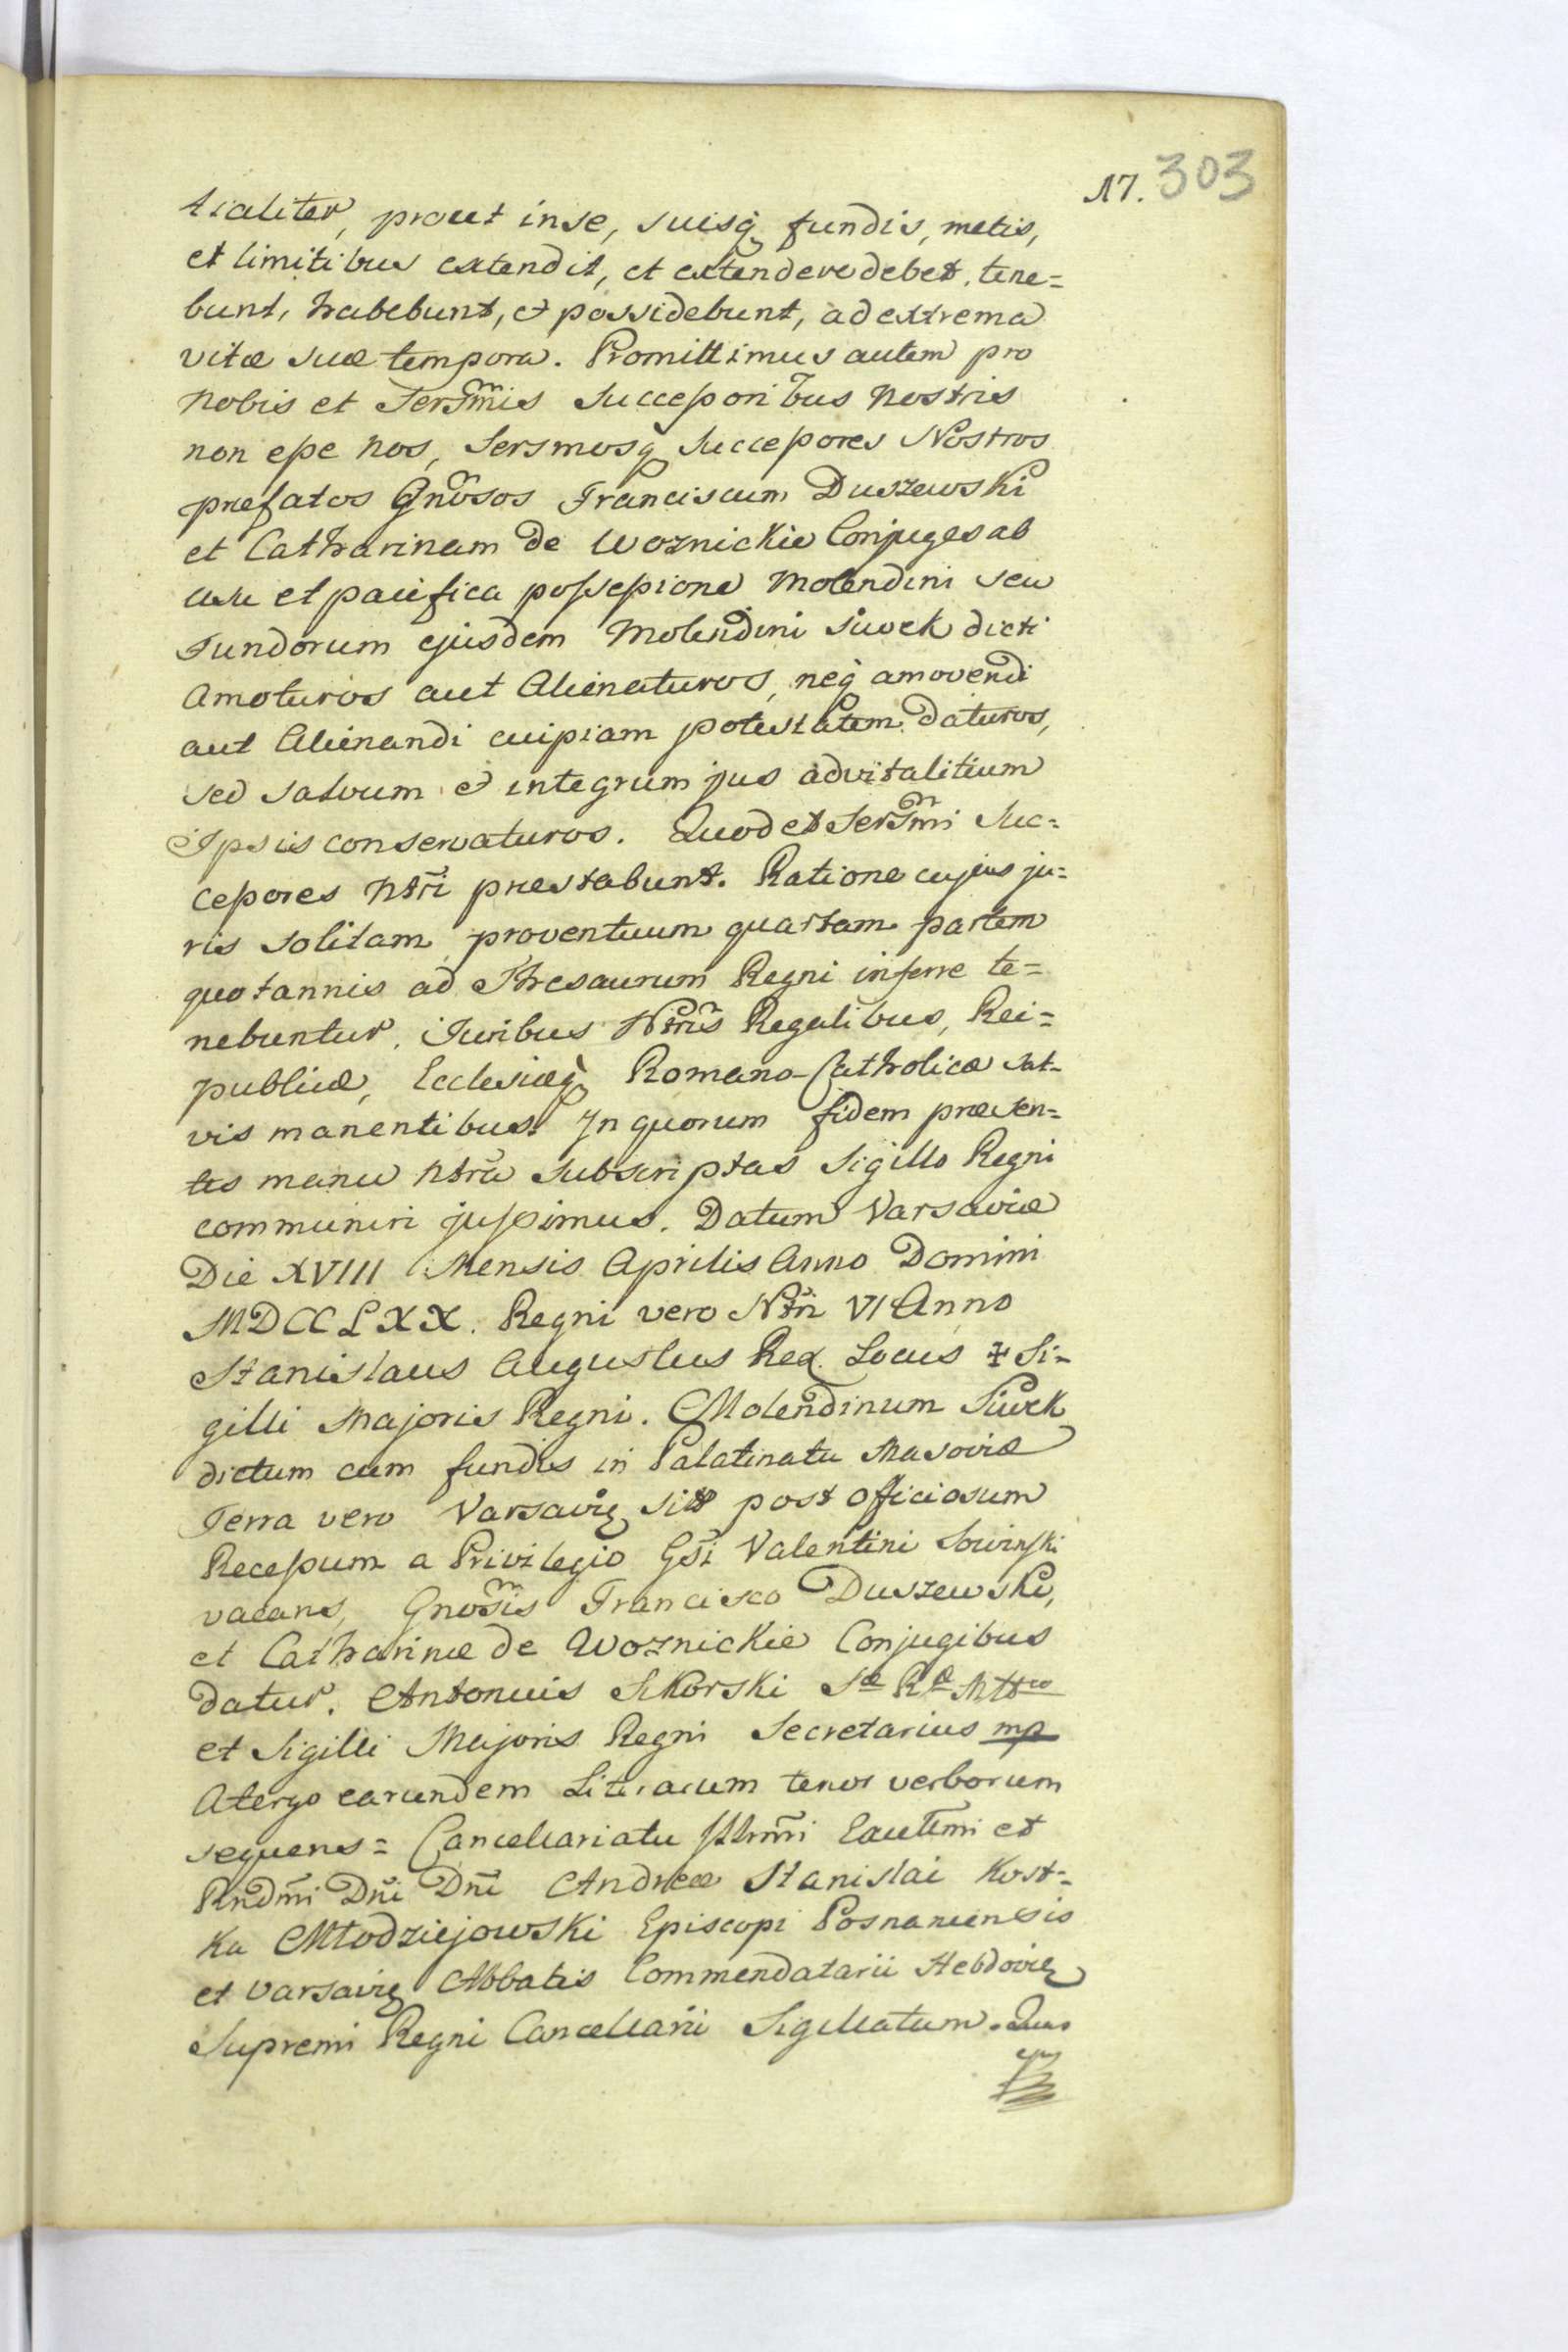 17. 303
tialiter, prout in se, suisq, fundis, metis,
et limitibus extendit, et extendere debet, tene=
bunt, habebunt, et possidebunt, ad extrema
vitæ suæ tempora. Promittimus autem pro
Nobis et Serm̃is Successoribus Nostris
non esse Nos, Sersmosq Successores Nostros
præfatos Gnõsos Franciscum Duszewski
et Catharinam de Woznickie Conjuges ab
usu et pacifica possessione Molendini seu
Fundorum ejusdem Molendini Siwek dicti
Amoturos aut Alienaturos, neq amovendi
aut Alienandi cuipiam potestatem daturos,
sed salvum et integrum jus advitalitium
Ipsis conservaturos. Quod et Serm̃i Suc=
cessores Ntr̃i præstabunt. Ratione cujus ju=
ris solitam proventuum quartam partem
quotannis ad Thesaurum Regni inferre te=
nebuntur. Juribus Ntr̃is Regalibus, Rei=
publicæ, Ecclesiæq Romano-Catholicæ sal-
vis manentibus. In quorum fidem præsen=
tes manu Ntrã subscriptas Sigillo Regni
communiri jussimus. Datum Varsaviæ
Die XVIII Mensis Aprilis Anno Domini
MDCCLXX. Regni vero Ntr̃i VI Anno
Stanislaus Augustus Rex. Locus ‡ Si=
gilli Majoris Regni. Molendinum Siwek
dictum cum fundis in Palatinatu Masoviæ
Terra vero Varsavię sitt post officiosum
Recessum a Privilegio Gs̃i Valentini Sowinski
vacans, Gnos̃is Francisco Duszewski,
et Catharinæ de Woznickie Conjugibus
datur. Antonius Sikorski Sæ Ræ Mttis
et Sigilli Majoris Regni Secretarius mp
A tergo earundem Literarum tenor verborum
sequens = Cancellariatu Illrm̃i Excellm̃i et
Rndm̃i Dñi Dñi Andreæ Stanislai Kost=
ka Młodziejowski Episcopi Posnaniensis
et Varsavię Abbatis Commendatarii Hebdovię
Supremi Regni Cancellarii Sigillatum. Quas